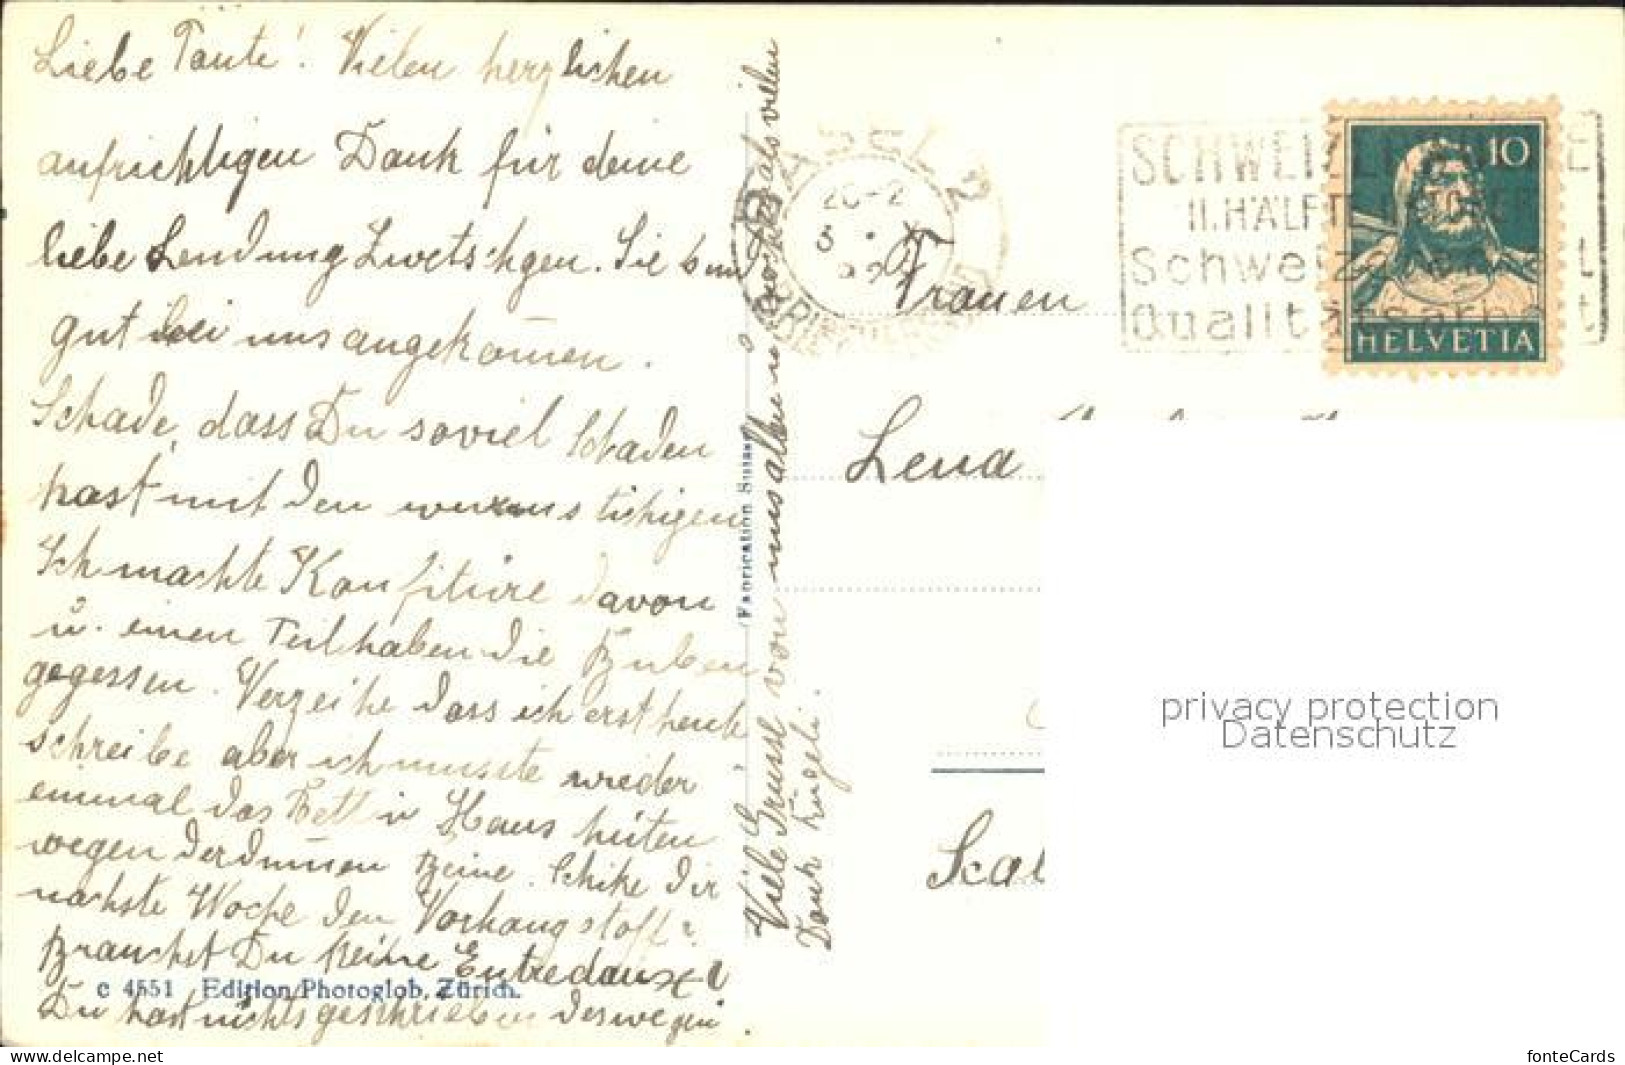 Liebe Tante! Vielen herzlichen
aufrichtigen Dank für deine
liebe Sendung Zwetschgen. Sie sind
gut bei uns angekom̄en.
Schade, dass Du soviel Schaden
hast mit den wurmstichigen
Ich machte Konfitüre davon
u. einen Teil haben die Buben
gegessen. Verzeihe dass ich erst heute
schreibe aber ich musste wieder
einmal das Bett hüten
wegen der dum̄en Beine. Schike Dir
nachste Woche den Vorhangstoff?
Brauchst Du keine Entredeaux
Du hast nichts geschrieben deswegen.
Viele Grüsse von uns allen u. nochmals vielen
Dank
(Fabrication Suisse)
c 4551 Edition Photoglob, Zürich.
BASEL 2
SCHWEIZ
II. HÄLFT
Schweize
Qualitätsarb
10
HELVETIA
Frauen
Lena
privacy protection
Datenschutz
https://www.delcampe.net
fonteCards